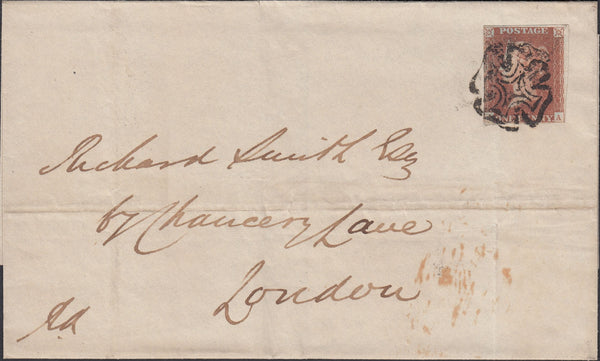 POSTAGE
A
Richard Smith Esq
67 Chancery Lane
London